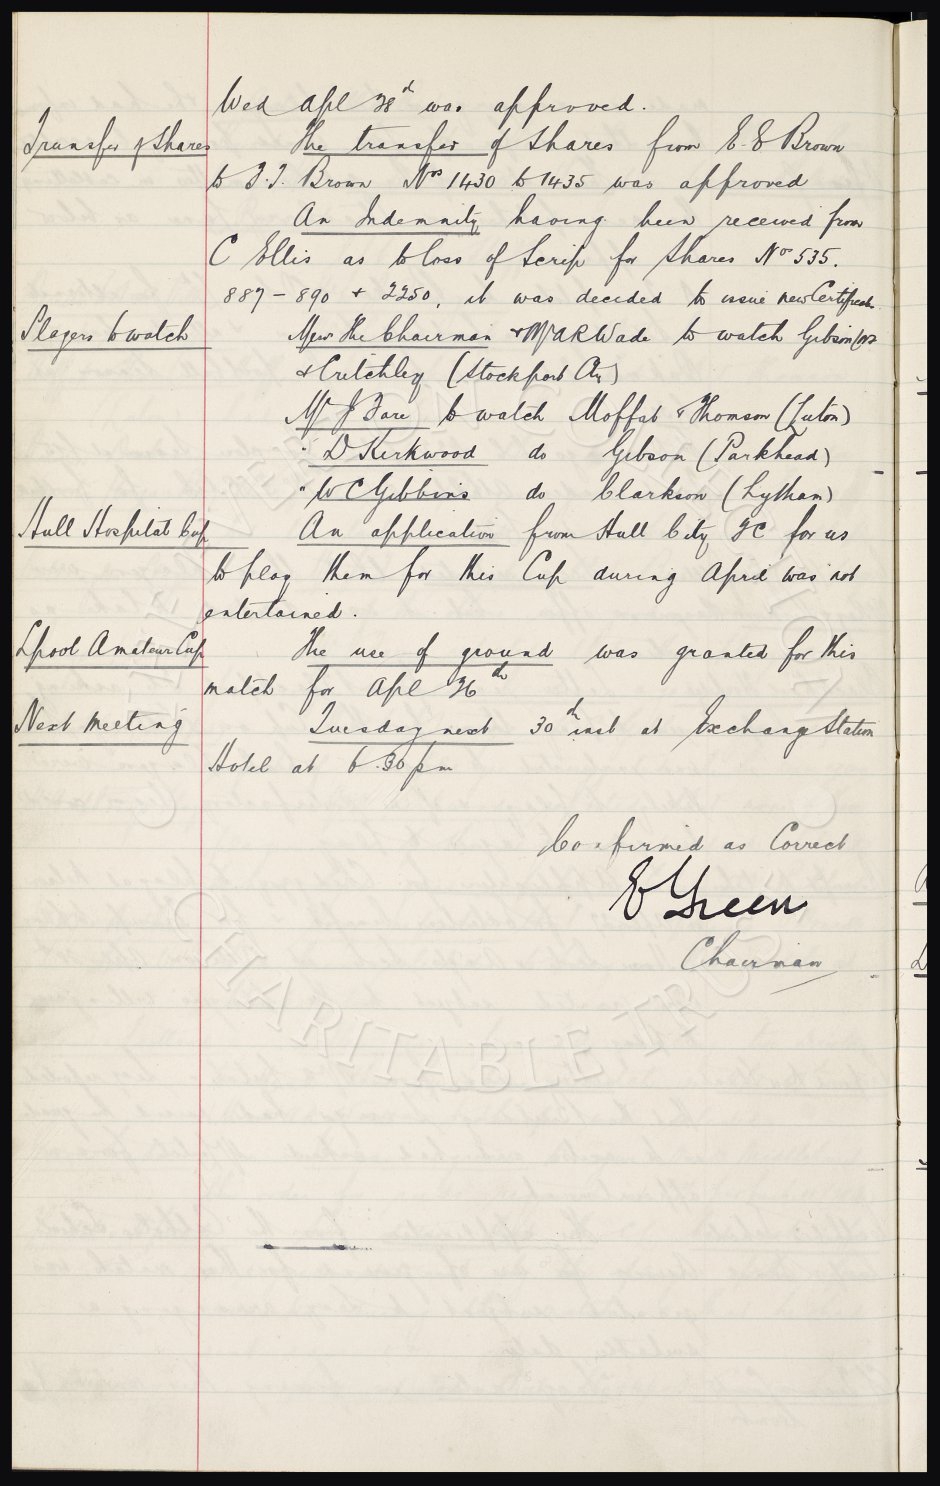 Wed Apl 28d was approved.
Transfer of Shares The transfer of Shares from E. E Brown
to J. J. Brown Nos 1430 to 1435 was approved
An Indemnity having been received from
C Ellis as to loss of Scrip for Shares No 535.
887 - 890 + 2250, it was decided to issue new Certificate
Players to watch Messrs The Chairman & W R Wade to watch Gibson
& Critchley (Stockport Cty)
Mr J Fare to watch Moffat & Thomson (Luton)
" D Kirkwood do Gibson (Parkhead)
" W C Gibbins do Clarkson (Lytham)
Hull Hospital Cup An application from Hull City FC for us
to play them for this Cup during April was not
entertained.
Lpool Amateur Cup The use of ground was granted for this
match for Apl 26th
Next Meeting Tuesday next 30th inst at Exchange Station
Hotel at 6.30 pm
Confirmed as Correct
E Green
Chairman
CHARITABLE TRUST